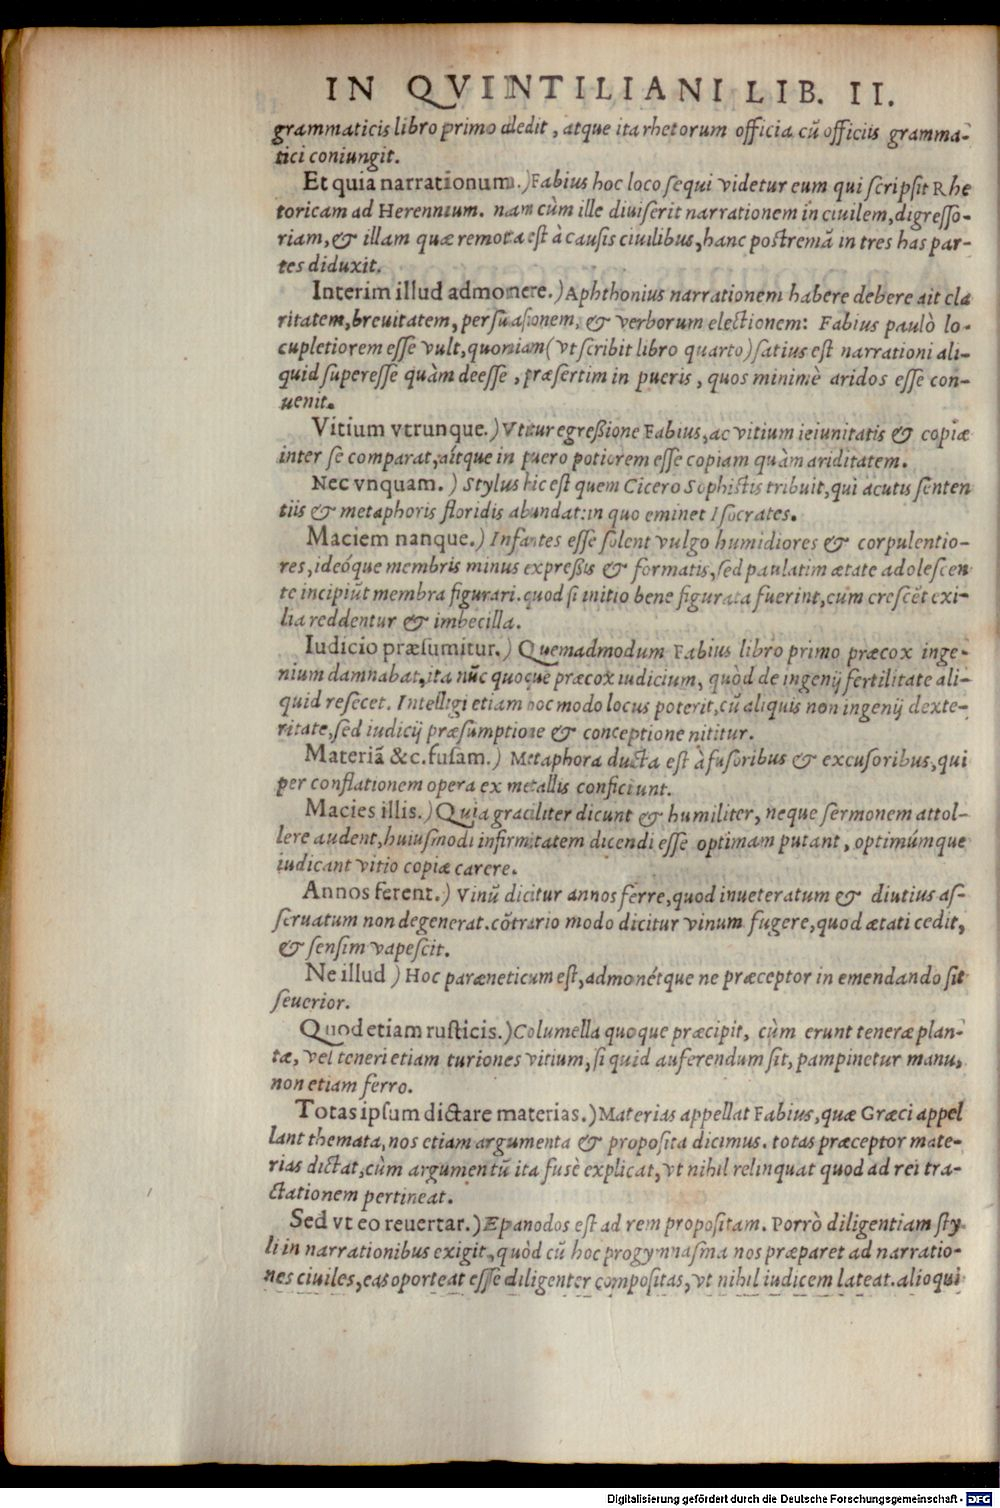 IN QVINTILIANI LIB. II.
grammaticis libro primo dedit, atque ita rhetorum officia cũ officiis gramma-
tici coniungit.
Et quia narrationum.) Fabius hoc loco sequi videtur eum qui scripsit Rhe
toricam ad Herennium. nam cùm ille diuiserit narrationem in ciuilem, digresso-
riam, & illam quæ remota est à causis ciuilibus, hanc postremã in tres has par-
tes diduxit.
Interim illud admonere.) Aphthonius narrationem habere debere ait cla
ritatem, breuitatem, persuasionem, & verborum electionem: Fabius paulò lo-
cupletiorem esse vult, quoniam (vt scribit libro quarto) satius est narrationi ali-
quid superesse quàm deesse, præsertim in pueris, quos minimè aridos esse con-
uenit.
Vitium vtrunque.) Vtitur egreßione Fabius, ac vitium ieiunitatis & copiæ
inter se comparat, aitque in puero potiorem esse copiam quàm ariditatem.
Nec vnquam.) Stylus hic est quem Cicero Sophistis tribuit, qui acutis senten
tiis & metaphoris floridis abundat: in quo eminet Isocrates.
Maciem nanque.) Infantes esse solent vulgo humidiores & corpulentio-
res, ideóque membris minus expreßis & formatis, sed paulatim ætate adolescen
te incipiũt membra figurari. quod si initio bene figurata fuerint, cùm crescẽt exi-
lia reddentur & imbecilla.
Iudicio præsumitur.) Quemadmodum Fabius libro primo præcox inge-
nium damnabat, ita nũc quoque præcox iudicium, quòd de ingenij fertilitate ali-
quid resecet. Intelligi etiam hoc modo locus poterit, cũ aliquis non ingenij dexte-
ritate, sed iudicij præsumptione & conceptione nititur.
Materiã &c. fusam.) Metaphora ducta est à fusoribus & excusoribus, qui
per conflationem opera ex metallis conficiunt.
Macies illis.) Quia graciliter dicunt & humiliter, neque sermonem attol-
lere audent, huiusmodi infirmitatem dicendi esse optimam putant, optimúmque
iudicant vitio copiæ carere.
Annos ferent.) Vinũ dicitur annos ferre, quod inueteratum & diutius as-
seruatum non degenerat. cõtrario modo dicitur vinum fugere, quod ætati cedit,
& sensim vapescit.
Ne illud) Hoc paræneticum est, admonétque ne præceptor in emendando sit
seuerior.
Quod etiam rusticis.) Columella quoque præcipit, cùm erunt teneræ plan-
tæ, vel teneri etiam turiones vitium, si quid auferendum sit, pampinetur manu,
non etiam ferro.
Totas ipsum dictare materias.) Materias appellat Fabius, quæ Græci appel
lant themata, nos etiam argumenta & proposita dicimus. totas præceptor mate-
rias dictat, cùm argumentũ ita fusè explicat, vt nihil relinquat quod ad rei tra-
ctationem pertineat.
Sed vt eo reuertar.) Epanodos est ad rem propositam. Porrò diligentiam sty-
li in narrationibus exigit, quòd cũ hoc progymnasma nos præparet ad narratio-
nes ciuiles, eas oporteat esse diligenter compositas, vt nihil iudicem lateat. alioqui
Digitalisierung gefördert durch die Deutsche Forschungsgemeinschaft - DFG